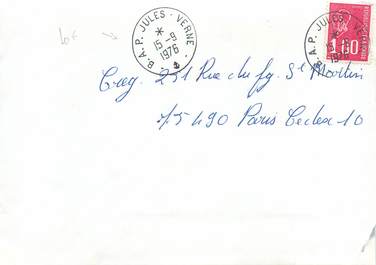 B.A.P. JULES-VERNE
15-9
1976
B.A.P. JULES-VERNE
1976
1,00
251 Rue du fg. St Martin
75490 Paris Cedex 10